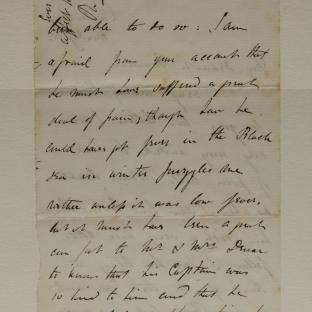 able to do so: I am
afraid from your account that
he must have suffered a great
deal of pain, though how he
could have got fever in the Black
Sea in winter puzzles me
rather unless it was low fever,
but it must have been a great
comfort to Mr & Mrs
to know that his Captain was
so kind to him and that he